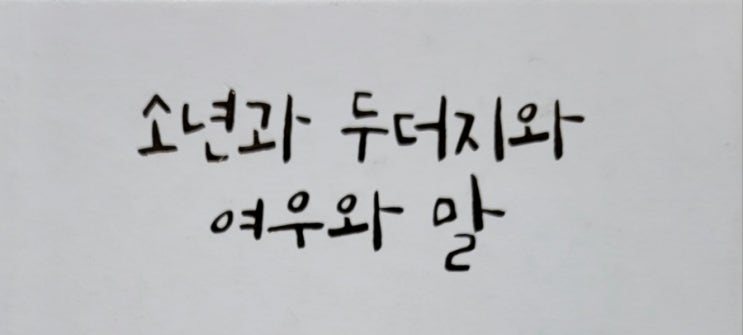 소년과 두더지와
여우와 말